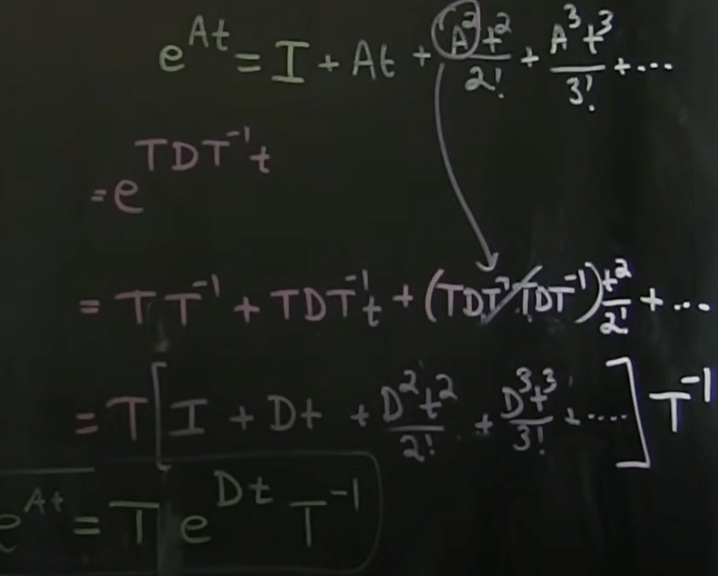 e^{At} = I + At + \frac{A^2 t^2}{2!} + \frac{A^3 t^3}{3!} + ...
= e^{TDT^{-1}t}
= T T^{-1} + TDT^{-1}t + (TDT^{-1}TDT^{-1})\frac{t^2}{2!} + ...
= T [ I + Dt + \frac{D^2 t^2}{2!} + \frac{D^3 t^3}{3!} + .... ] T^{-1}
e^{At} = T e^{Dt} T^{-1}